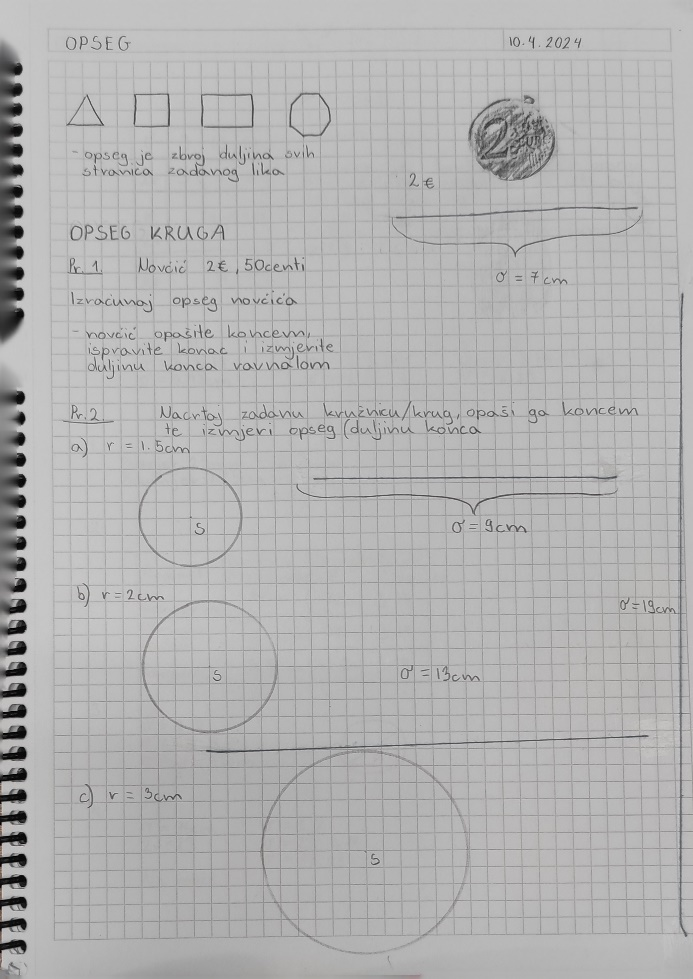 OPSEG
10.4.2024
- opseg je zbroj duljina svih
stranica zadanog lika
2
2€
o = 7cm
OPSEG KRUGA
Pr. 1. Novčić 2€, 50centi
Izračunaj opseg novčića
- novčić opašite koncem,
ispravite konac i izmjerite
duljinu konca ravnalom
Pr. 2. Nacrtaj zadanu kružnicu/krug, opaši ga koncem
te izmjeri opseg (duljinu konca
a) r = 1.5cm
S
o = 9cm
b) r = 2cm
o = 19cm
S
o = 13cm
c) r = 3cm
S